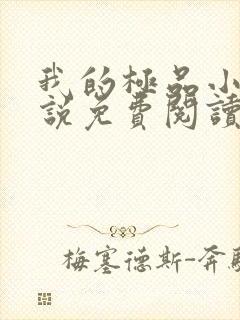 我的極品小
說免費閱讀
梅塞德斯-奔馳